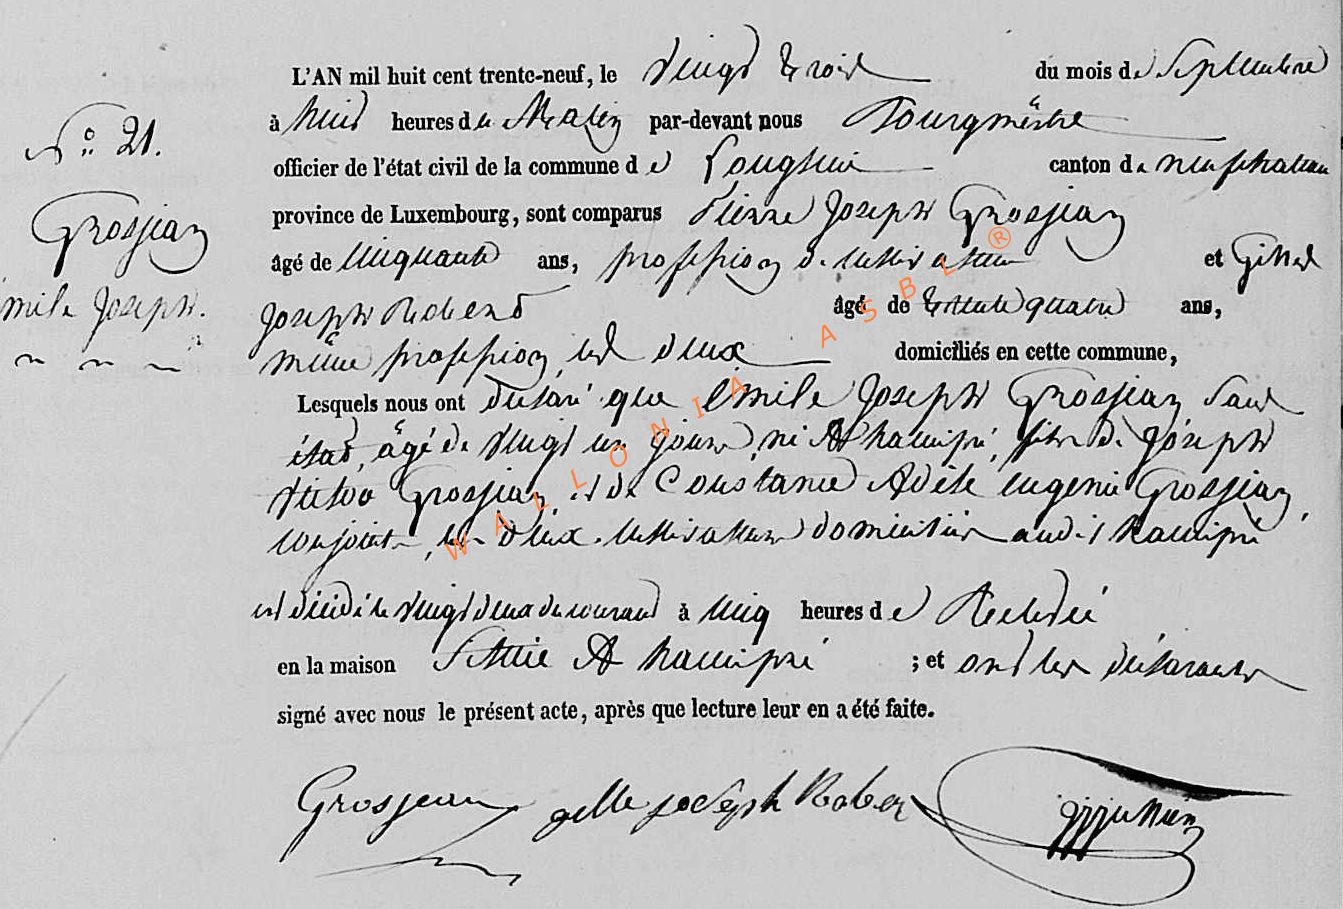 L'AN mil huit cent trente-neuf, le Vingt trois du mois de Septembre
N.º 21.
à huit heures du Matin par-devant nous Bourgmêstre
officier de l'état civil de la commune de Longlier canton de neufchateau
Grosjean
province de Luxembourg, sont comparus Pierre Joseph Grosjean
âgé de cinquante ans, profession de cultivateur et Gilles
Emile Joseph. Joseph Robert âgé de trente quatre ans,
même profession, les deux domiciliés en cette commune,
Lesquels nous ont déclaré que Emile Joseph Grosjean sans
état, âgé de vingt un jours, né A hamipré, fils de Joseph
Victor Grosjean et de Constance Adèle eugenie Grosjean,
conjoints, les deux cultivateurs domiciliés audit hamipré
est décédé le vingt deux du courant à cinq heures de Relevée
en la maison Située A hamipré ; et ont les déclarants
signé avec nous le présent acte, après que lecture leur en a été faite.
Grosjean gille joseph Rober
WALLONIA ASBL ®